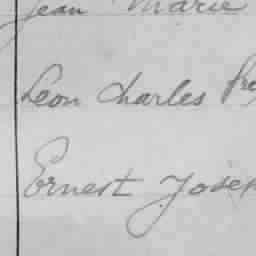 Jean Marie
Leon Charles
Ernest Joseph